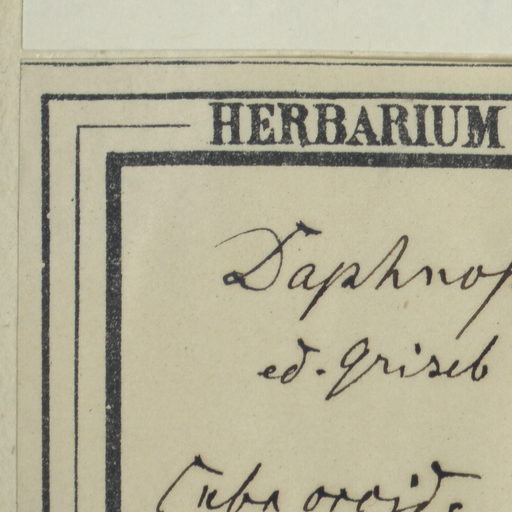 HERBARIUM
Daphnop
ed. Griseb
Cuba occid.